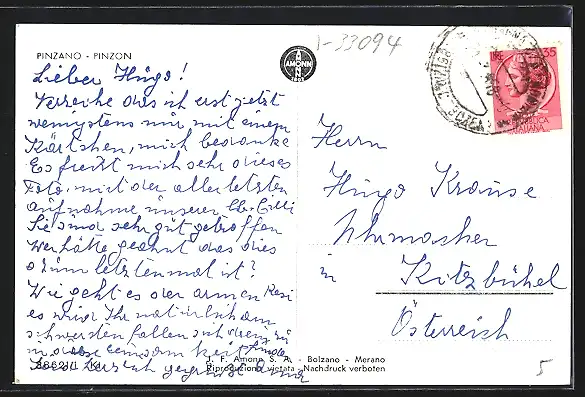 PINZANO - PINZON
1-33094
AMONN
Lieber Hugo!
Verzeihe das ich erst jetzt
wenigstens nur mit einem
Kärtchen, mich bedanke
Es freut mich sehr dieses
Foto, mit der aller letzten
aufnahme unserer lb. Cilli
Sie sind sehr gut getroffen
Wer hätte geahnt das dies
zum letztenmal ist?
Wie geht es der armen Resi
es wird Ihr natürlich am
schwersten fallen sich
Herrn
Hugo Krause
Uhrmacher
in Kitzbühel
Österreich
LIRE 35
ITALIANA
J. F. Amonn S. A. - Bolzano - Merano
Riproduzione vietata - Nachdruck verboten
5